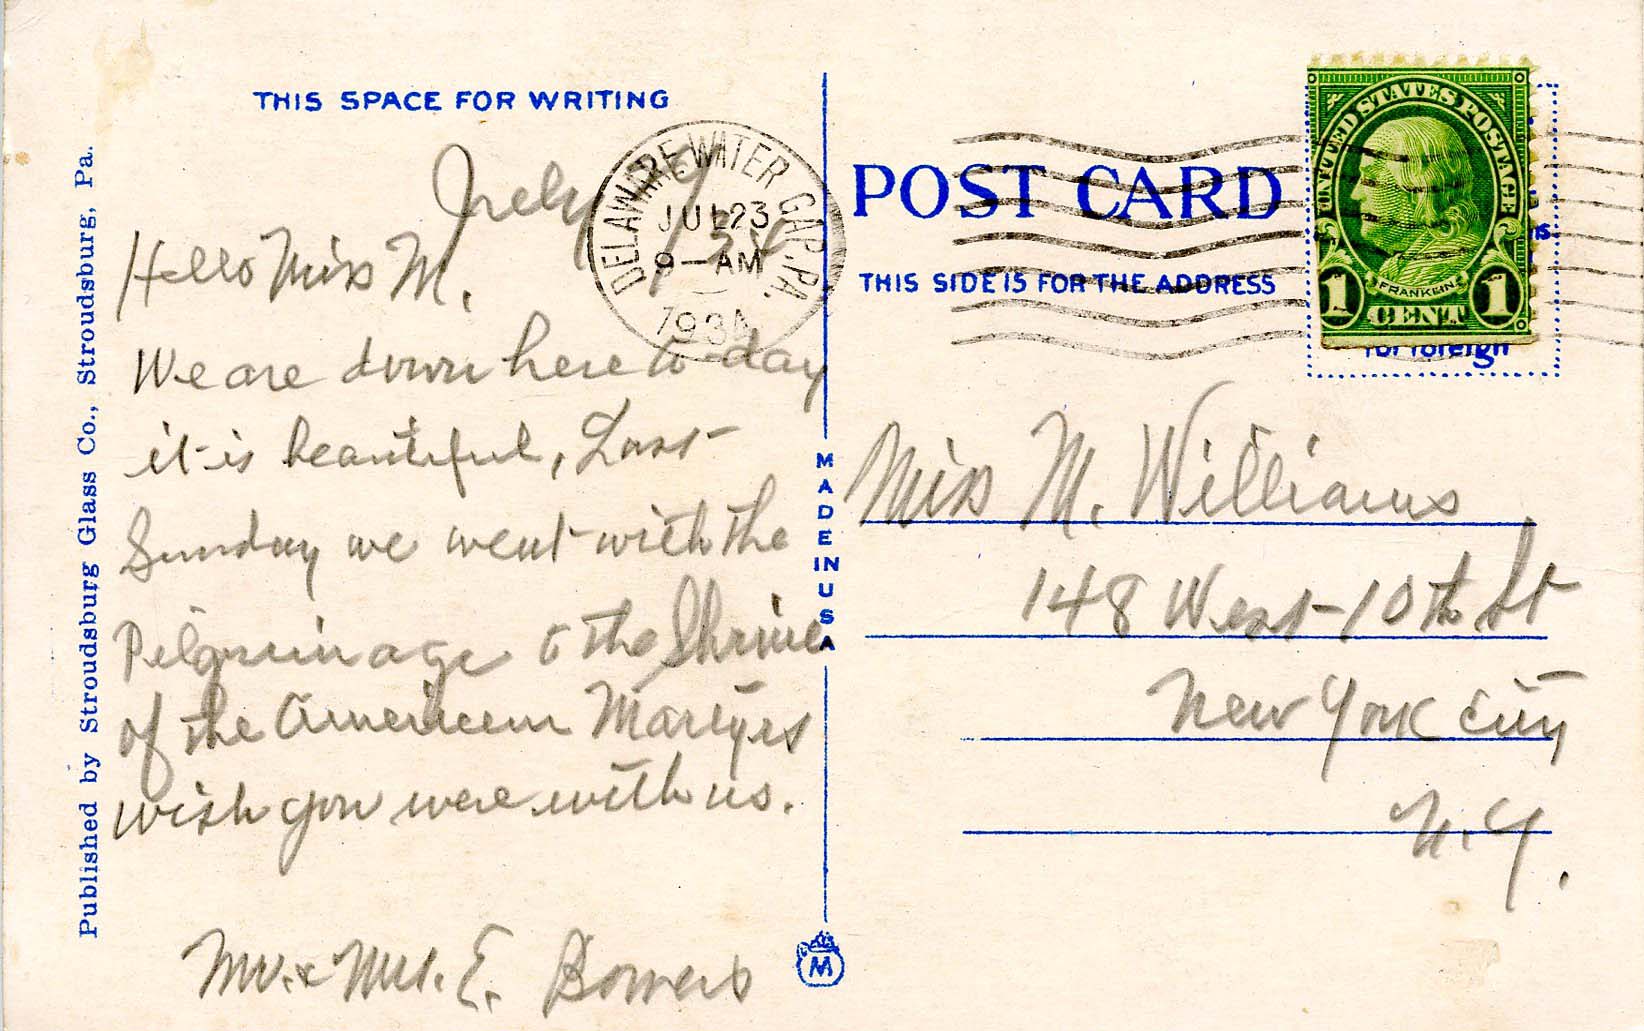 THIS SPACE FOR WRITING
July
Hello Miss M.
We are down here to-day
it is beautiful, Last
Sunday we went with the
Pilgrimage to the Shrine
of the American Martyrs
wish you were with us.
Mr. & Mrs. E. Bowers
Published by Stroudsburg Glass Co., Stroudsburg, Pa.
DELAWARE WATER GAP. PA.
JUL 23
9-AM
MADE IN USA
M
POST CARD
THIS SIDE IS FOR THE ADDRESS
UNITED STATES POSTAGE
FRANKLIN
1 CENT 1
for foreign
Miss M. Williams
148 West-10th St
New York City
N.Y.